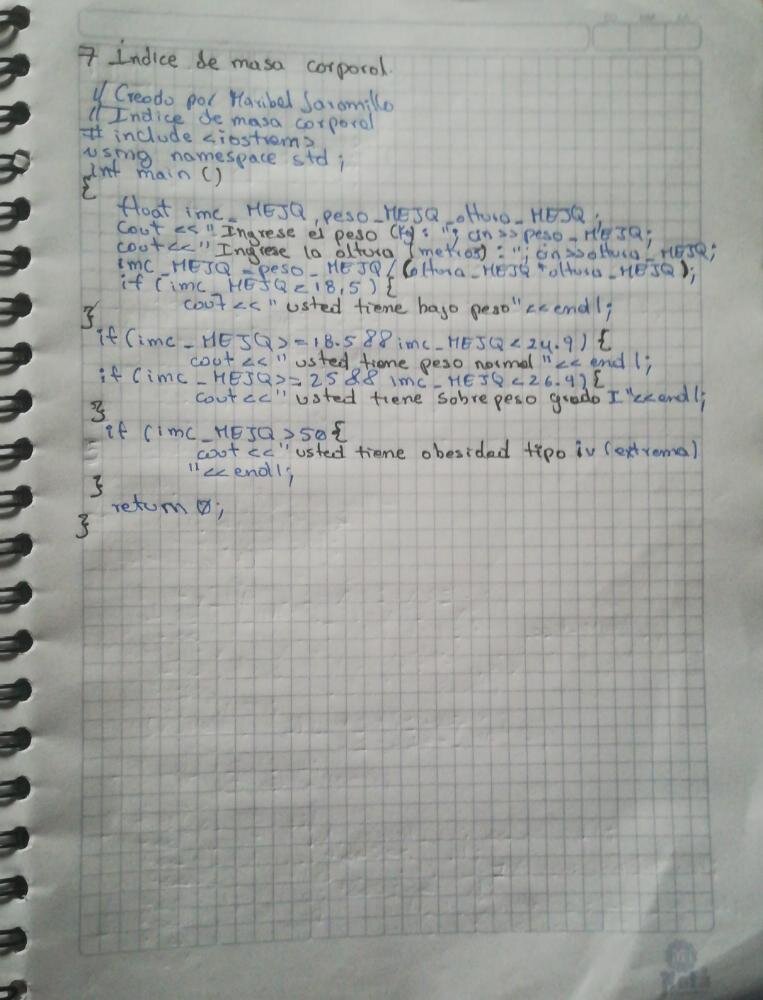 7 Índice de masa corporal.
// Creado por Maribel Jaramillo
// Indice de masa corporal
# include <iostrem>
using namespace std ;
int main ()
{
float imc_MEJQ, peso_MEJQ, altura_MEJQ ;
cout << " Ingrese el peso (kg) : "; cin >> peso_MEJQ;
cout << " Ingrese la altura (metros) : "; cin >> altura_MEJQ;
imc_MEJQ = peso_MEJQ / (altura_MEJQ * altura_MEJQ);
if (imc_MEJQ < 18,5) {
cout << " usted tiene bajo peso" << endl;
}
if (imc_MEJQ >= 18.5 && imc_MEJQ < 24.9) {
cout << " usted tiene peso normal " << endl;
if (imc_MEJQ >= 25 && imc_MEJQ < 26.9) {
cout << " usted tiene sobrepeso grado I " << endl;
}
if (imc_MEJQ > 50 {
cout << " usted tiene obesidad tipo iv (extrema)
" << endl;
}
return 0;
}